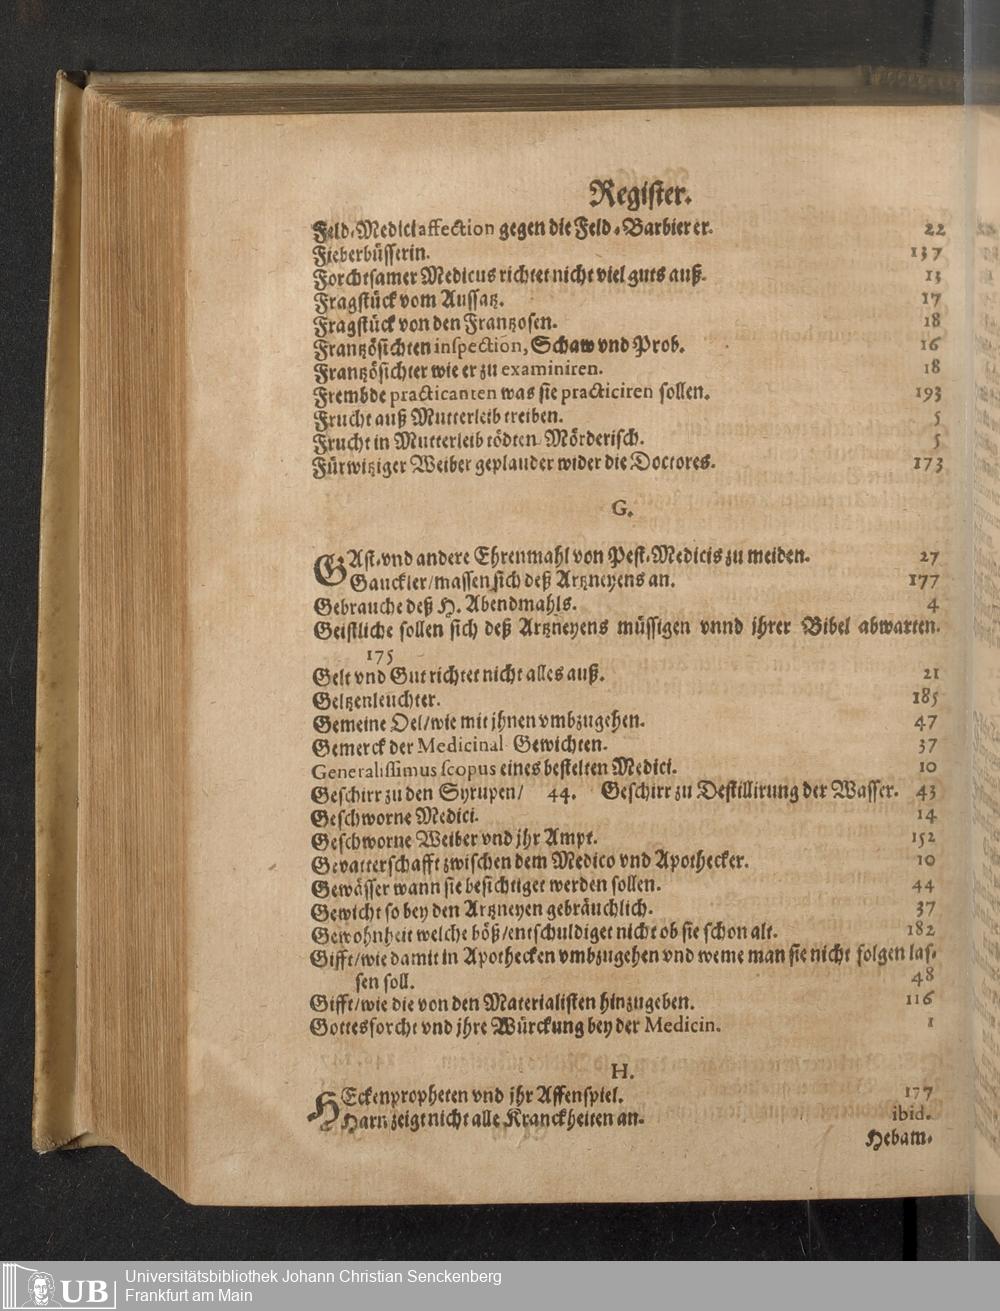 Register.
Feld-Medici affection gegen die Feld-Barbierer. 22
Fieberbüsserin. 137
Forchtsamer Medicus richtet nicht viel guts auß. 13
Fragstück vom Aussatz. 17
Fragstück von den Frantzosen. 18
Frantzösichten inspection, Schaw vnd Prob. 16
Frantzösichter wie er zu examiniren. 18
Frembde practicanten was sie practiciren sollen. 193
Frucht auß Mutterleib treiben. 5
Frucht in Mutterleib tödten Mörderisch. 5
Fürwitziger Weiber geplauder wider die Doctores. 173
G.
GAst- vnd andere Ehrenmahl von Pest-Medicis zu meiden. 27
Gauckler/ massen sich deß Artzneyens an. 177
Gebrauche deß H. Abendmahls. 4
Geistliche sollen sich deß Artzneyens müssigen vnnd jhrer Bibel abwarten.
175
Gelt vnd Gut richtet nicht alles auß. 21
Geltzenleuchter. 185
Gemeine Oel/ wie mit jhnen vmbzugehen. 47
Gemerck der Medicinal Gewichten. 37
Generalissimus scopus eines bestelten Medici. 10
Geschirr zu den Syrupen/ 44. Geschirr zu Destillirung der Wasser. 43
Geschworne Medici. 14
Geschworne Weiber vnd jhr Ampt. 152
Gevatterschafft zwischen dem Medico vnd Apothecker. 10
Gewässer wann sie besichtiget werden sollen. 44
Gewicht so bey den Artzneyen gebräuchlich. 37
Gewohnheit welche böß/ entschuldiget nicht ob sie schon alt. 182
Gifft/ wie damit in Apothecken vmbzugehen vnd weme man sie nicht folgen las-
sen soll. 48
Gifft/ wie die von den Materialisten hinzugeben. 116
Gottesforcht vnd jhre Würckung bey der Medicin. 1
H.
HEckenpropheten vnd jhr Affenspiel. 177
Harn zeigt nicht alle Kranckheiten an. ibid.
Hebam-
UB
Universitätsbibliothek Johann Christian Senckenberg
Frankfurt am Main